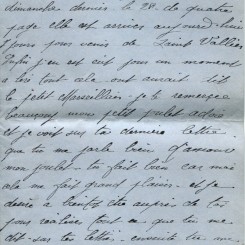 dimanche dernier le 28. de quatre
page elle est arrivée aujourd-hui
jours pour venir de Saint Vallier
Enfin j'en est eut pour un moment
a lire tout cela ont aurait dit
le petit Marseillais - je te remercie
beaucoup mon petit poulet adoré
et je voit sur ta dernière lettre
que tu me parle bien d'amour
mon poulet - tu fait bien car mais
cela me fait grand plaisir - et je
désir a bientôt être auprès de toi
pour réaliser tout ce que tu me
dit sur tes lettre -